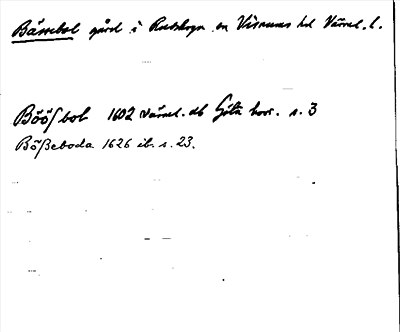 Bässebol gård i Rudskoga sn Visnums hd Värml. l.
Bööſbol 1602 Värml. db Göta hovr. s. 3
Bößeboda 1626 ib. s. 23.